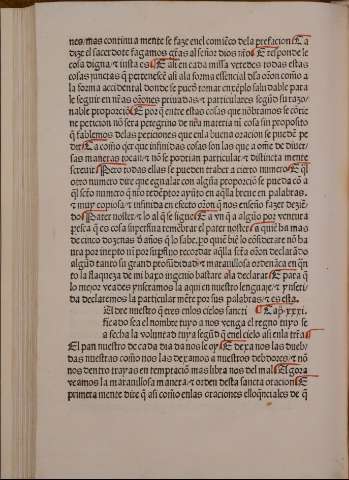 nes/mas continua mente se faze enel comiẽço dela prefacion ⁊ a
dize el sacerdote fagamos grãs al señor dios nr̃o ⁊ responde le
cosa digna ⁊ iusta es ⁊ asi en cada missa veredes todas estas
cosas iuntas q̃ pertenescẽ asi ala forma essencial dla oraõn como a
la forma accidental donde se puede tomar enxẽplo saludable para
le seguir en nr̃as oraões priuadas ⁊ particulares segũd su razo
nable proporciõ ⁊ por q̃ entre estas cosas que nõbramos se cõtie
ne peticion nõ sera peregrino de nr̃a materia ni cosa sin proposito
q̃ fablemos delas peticiones que enla buena oracion se puedẽ pe
dir La como qer que infinidas cosas son las que a ome de diuer
sas maneras tocan ⁊ nõ se podrian particular ⁊ distincta mente
screuir Pero todas ellas se pueden traher a cierto numero ⁊ ql
otro numero dire que egualar con algũa proporciõ se pueda cõ a
ql seto numero q̃ nr̃o redẽptor ayũto en aqlla breue en palabras.
⁊ muy copiosa ⁊ infinida en efecto oraõn q̃ nos enseño faze dezie
do Pater noster ⁊ lo al que se sigue ⁊ a vn q̃ a algũo por ventura
paresca q̃ es cosa superflua remẽbrar el pater noster a qui ha mas
de cinco dozenas d años q̃ lo sabe. po quiẽ biẽ lo cõsiderare nõ ha
ura por inepto ni por supfluo recordar aqlla sctã oraõn declarãdo
algũd tanto su grand profũdidad ⁊ marauillosa ordenãça en quã
to la flaqueza de mi baxo ingenio bastare ala declarar ⁊ para q̃
lo mejor veades ynseramos la aqui en nuestro lenguaje ⁊ ynseri
da declaremos la particular mẽte por sus palabras ⁊ es esta.
Padre nuestro q̃ eres enlos cielos sancti Cap. xxxi.
ficado sea el nombre tuyo a nos venga el regno tuyo se
a fecha la voluntad tuya segũd q̃ enel cielo asi enla trr̃a
El pan nuestro de cada dia da nos le oy ⁊ dexa nos las nues
das nuestras como nos las dexamos a nuestros debdores ⁊ nõ
nos dentro trayas en temptacion mas libra nos del mal ⁊ agora
veamos la marauillosa manera ⁊ orden desta sancta oracion ⁊
primera mente dire q̃ asi como enlas oraciones elloq̃nciales de q̃